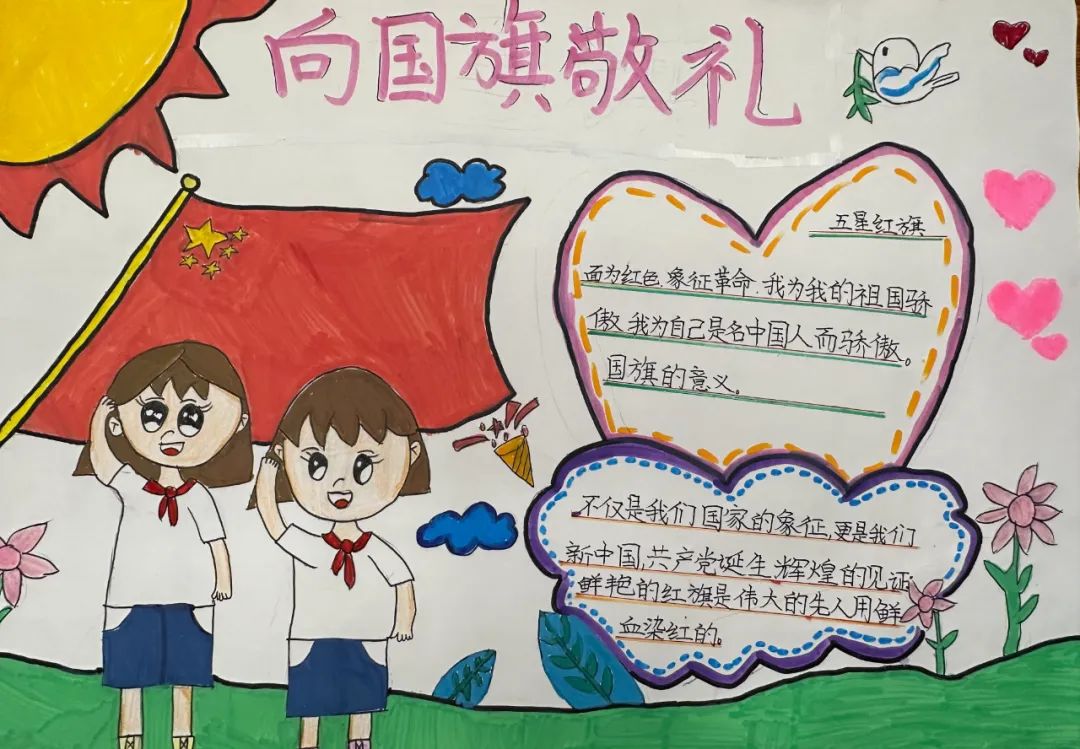 向国旗敬礼
五星红旗
面为红色.象征革命.我为我的祖国骄
傲.我为自己是名中国人而骄傲。
国旗的意义。
不仅是我们国家的象征,更是我们
新中国,共产党诞生.辉煌的见证
鲜艳的红旗是伟大的先人用鲜
血染红的。